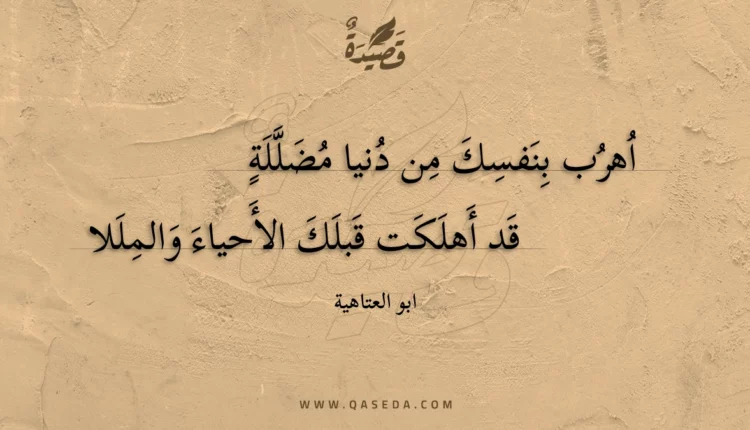 قَصِيدَةٌ
اُهرُب بِنَفسِكَ مِن دُنيا مُضَلَّلَةٍ
قَد أَهلَكَت قَبلَكَ الأَحياءَ وَالمِلَلا
ابو العتاهية
WWW.QASEDA.COM